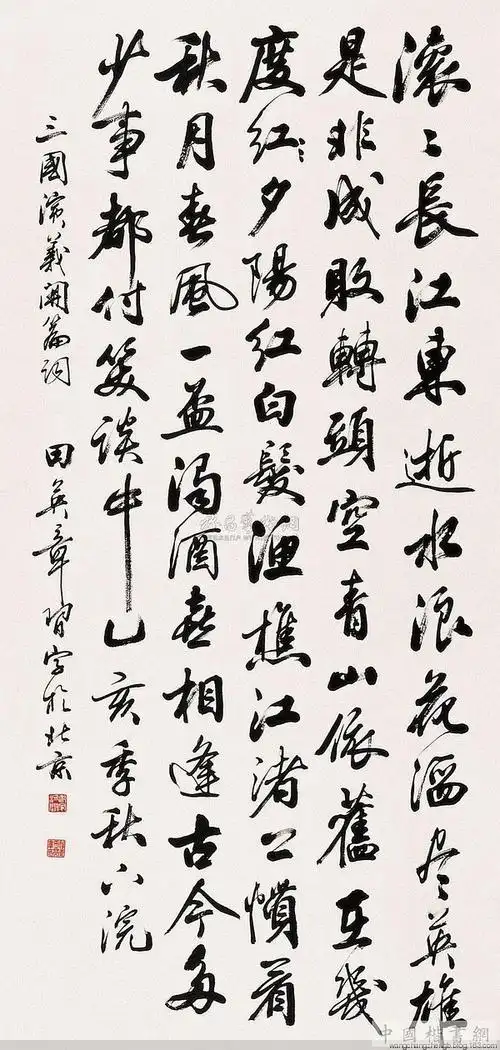 滚〻長江東逝水浪花淘尽英雄
是非成敗轉頭空青山依舊在幾
度紅〻夕陽紅白髮漁樵江渚上慣看
秋月春風一盃濁酒喜相逢古今多
少事都付笑談中乙亥季秋下浣
三國演義開篇詞 田英章習字於北京
中國楷書網